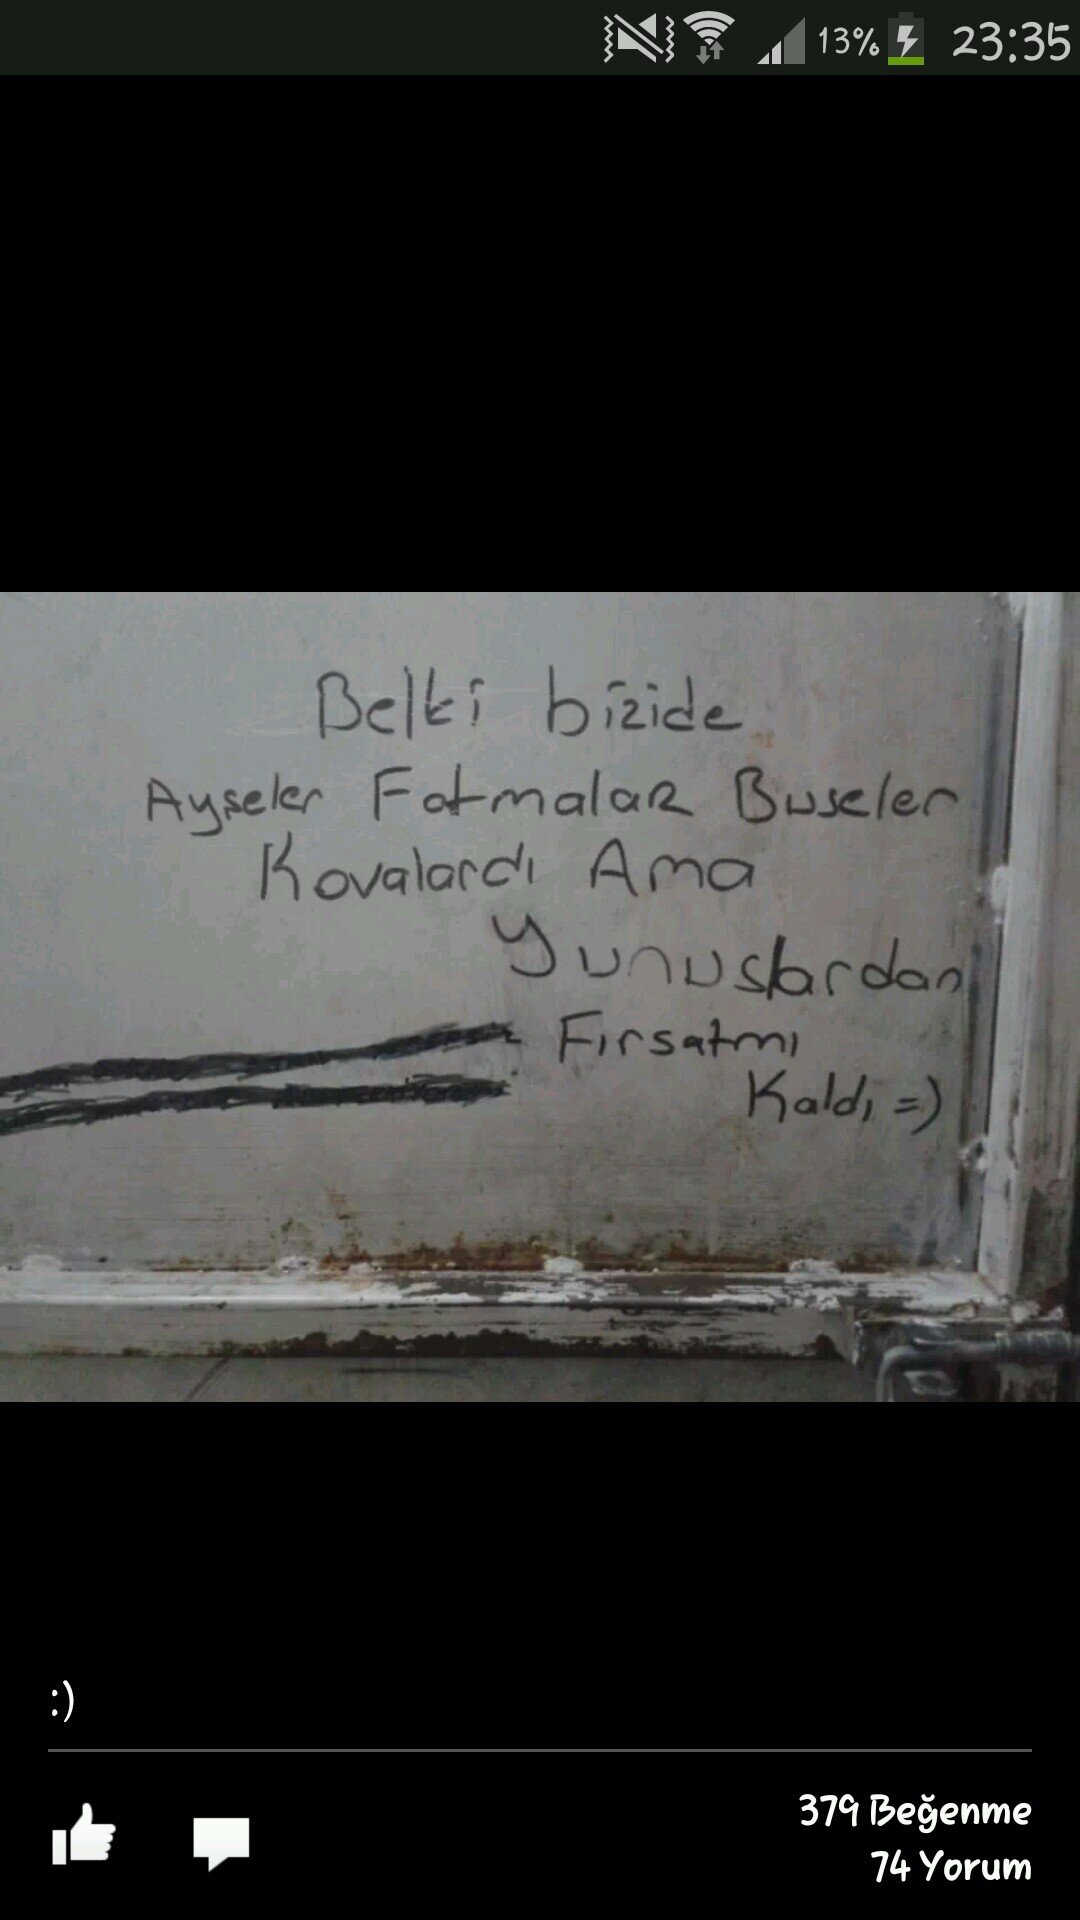 13% 23:35
Belki bizide
Ayşeler Fatmalar Buseler
Kovalardı Ama
Yunuslardan
Fırsatmı
Kaldı =)
:)
379 Beğenme
74 Yorum